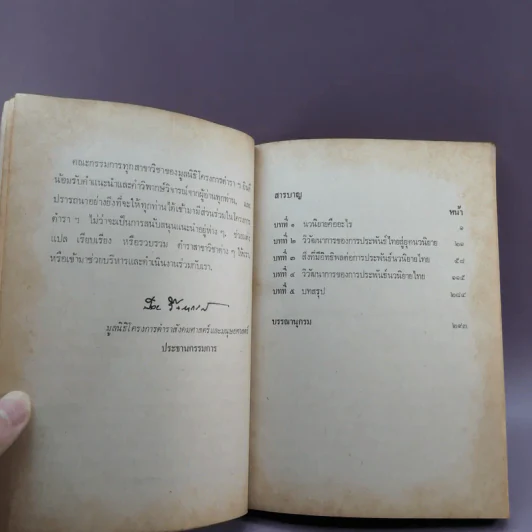 คณะกรรมการทุกสาขาวิชาของมูลนิธิโครงการตำรา ฯ ยินดี
น้อมรับคำแนะนำและคำวิพากษ์วิจารณ์จากผู้อ่านทุกท่าน และ
ปรารถนาอย่างยิ่งที่จะให้ทุกท่านได้เข้ามามีส่วนร่วมในโครงการ
ตำรา ฯ ไม่ว่าจะเป็นการสนับสนุนแนะนำอยู่ห่าง ๆ,
แปล เรียบเรียง หรือรวบรวม ตำราสาขาวิชาต่าง ๆ
หรือเข้ามาช่วยบริหารและดำเนินงานร่วมกับเรา.
มูลนิธิโครงการตำราสังคมศาสตร์และมนุษยศาสตร์
ประธานกรรมการ
สารบาญ
หน้า
บทที่ ๑ นวนิยายคืออะไร ๑
บทที่ ๒ วิวัฒนาการของการประพันธ์ไทยสู่ยุคนวนิยาย
บทที่ ๓ สิ่งที่มีอิทธิพลต่อการประพันธ์นวนิยายไทย ๕๘
บทที่ ๔ วิวัฒนาการของการประพันธ์นวนิยายไทย
บทที่ ๕ บทสรุป ๒๘๔
บรรณานุกรม ๒๙๓